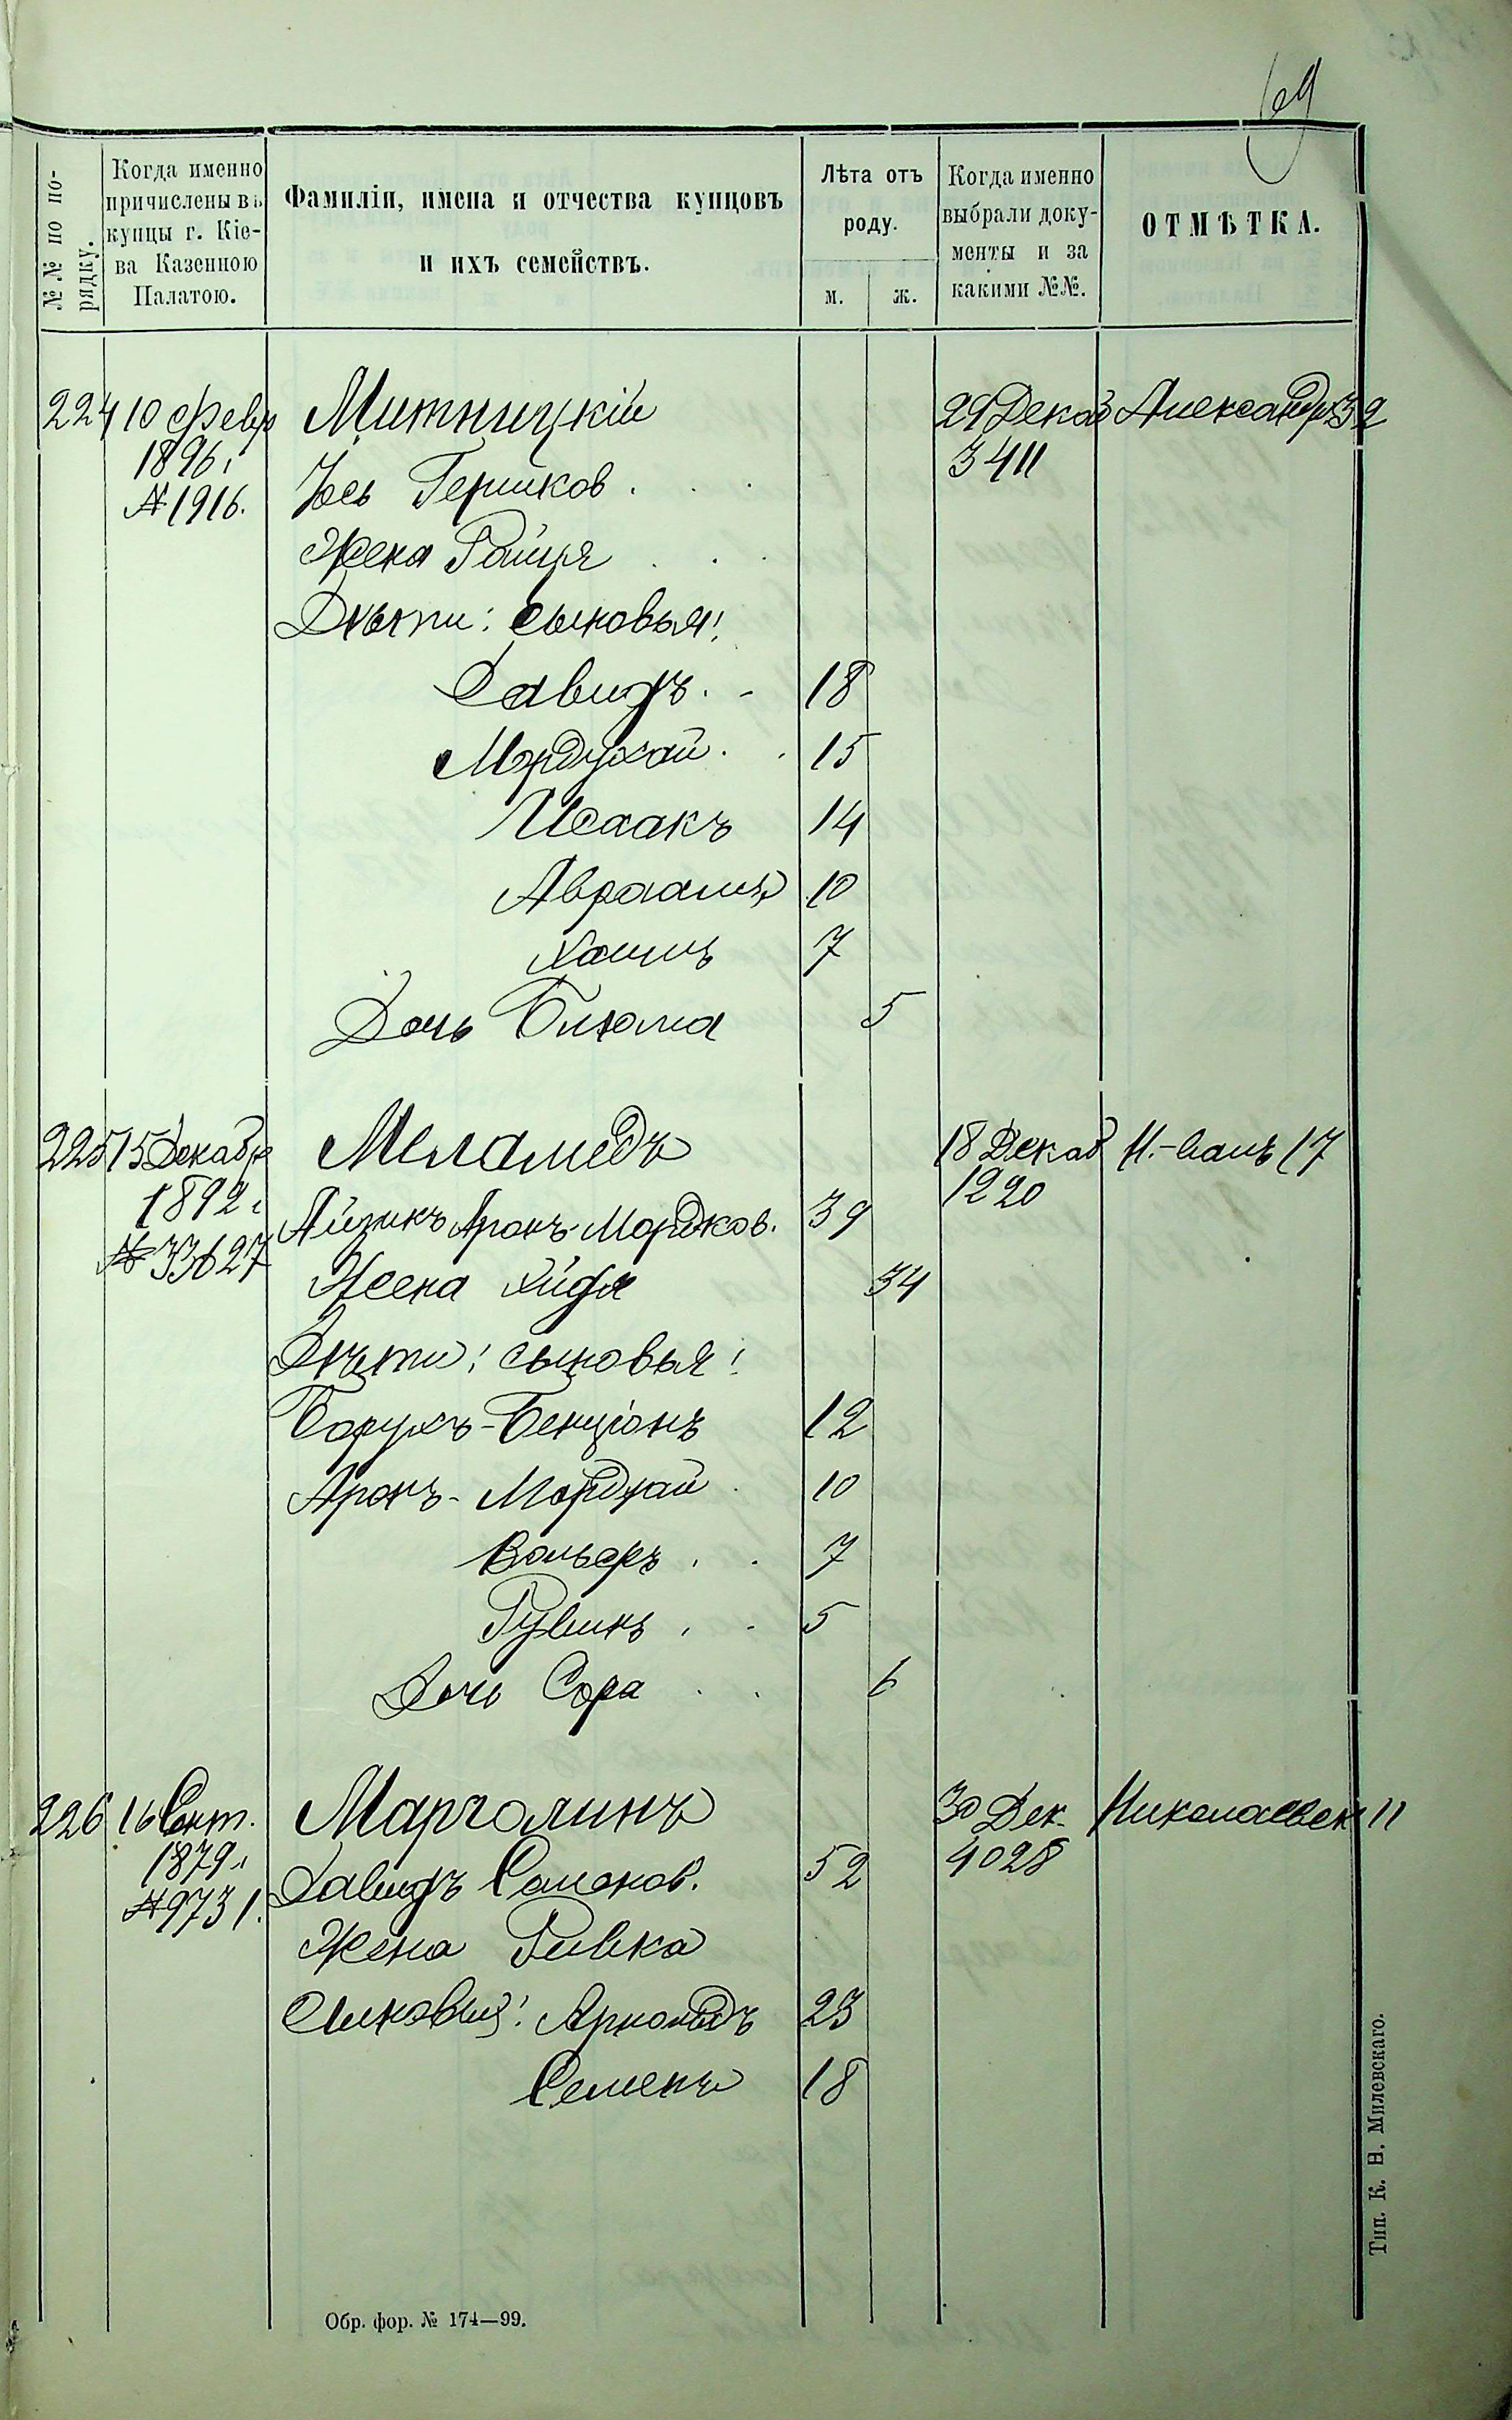 69
№№ по порядку.
Когда именно причислены въ купцы г. Кіева Казенною Палатою.
Фамиліи, имена и отчества купцовъ и ихъ семействъ.
Лѣта отъ роду.
м. ж.
Когда именно выбрали документы и за какими №№.
ОТМѢТКА.
224 10 Февр Митницкій 29 Декаб Александр 32
1896 г 3411
№ 1916. Іось Гершков . . .
Жена Райця . . .
Дѣти: сыновья:
Давидъ. - 18
Мордухай . . 15
Исаакъ 14
Авраамъ 10
Хаимъ 7
Дочь Блюма 5
225 15 Декабр Меламедъ 18 Декаб Н.-Валъ 17
1892 г 1220
№ 33627 Айзикъ Аронъ Мордков. 39
Жена 34
Дѣти: сыновья:
Борухъ-Бенціонъ 12
Аронъ-Мордхай . 10
Вольфъ . . 7
Рувинъ . . 5
Дочь Сора . . 6
226 16 Сент. Марголинъ 30 Дек. Николаевск 11
1879 г 4028
№ 9731. Давидъ Семенов. 52
Жена Ривка
Сыновья: Арнольдъ 23
Семенъ 18
Обр. фор. № 174—99.
Тип. К. Н. Милевскаго.